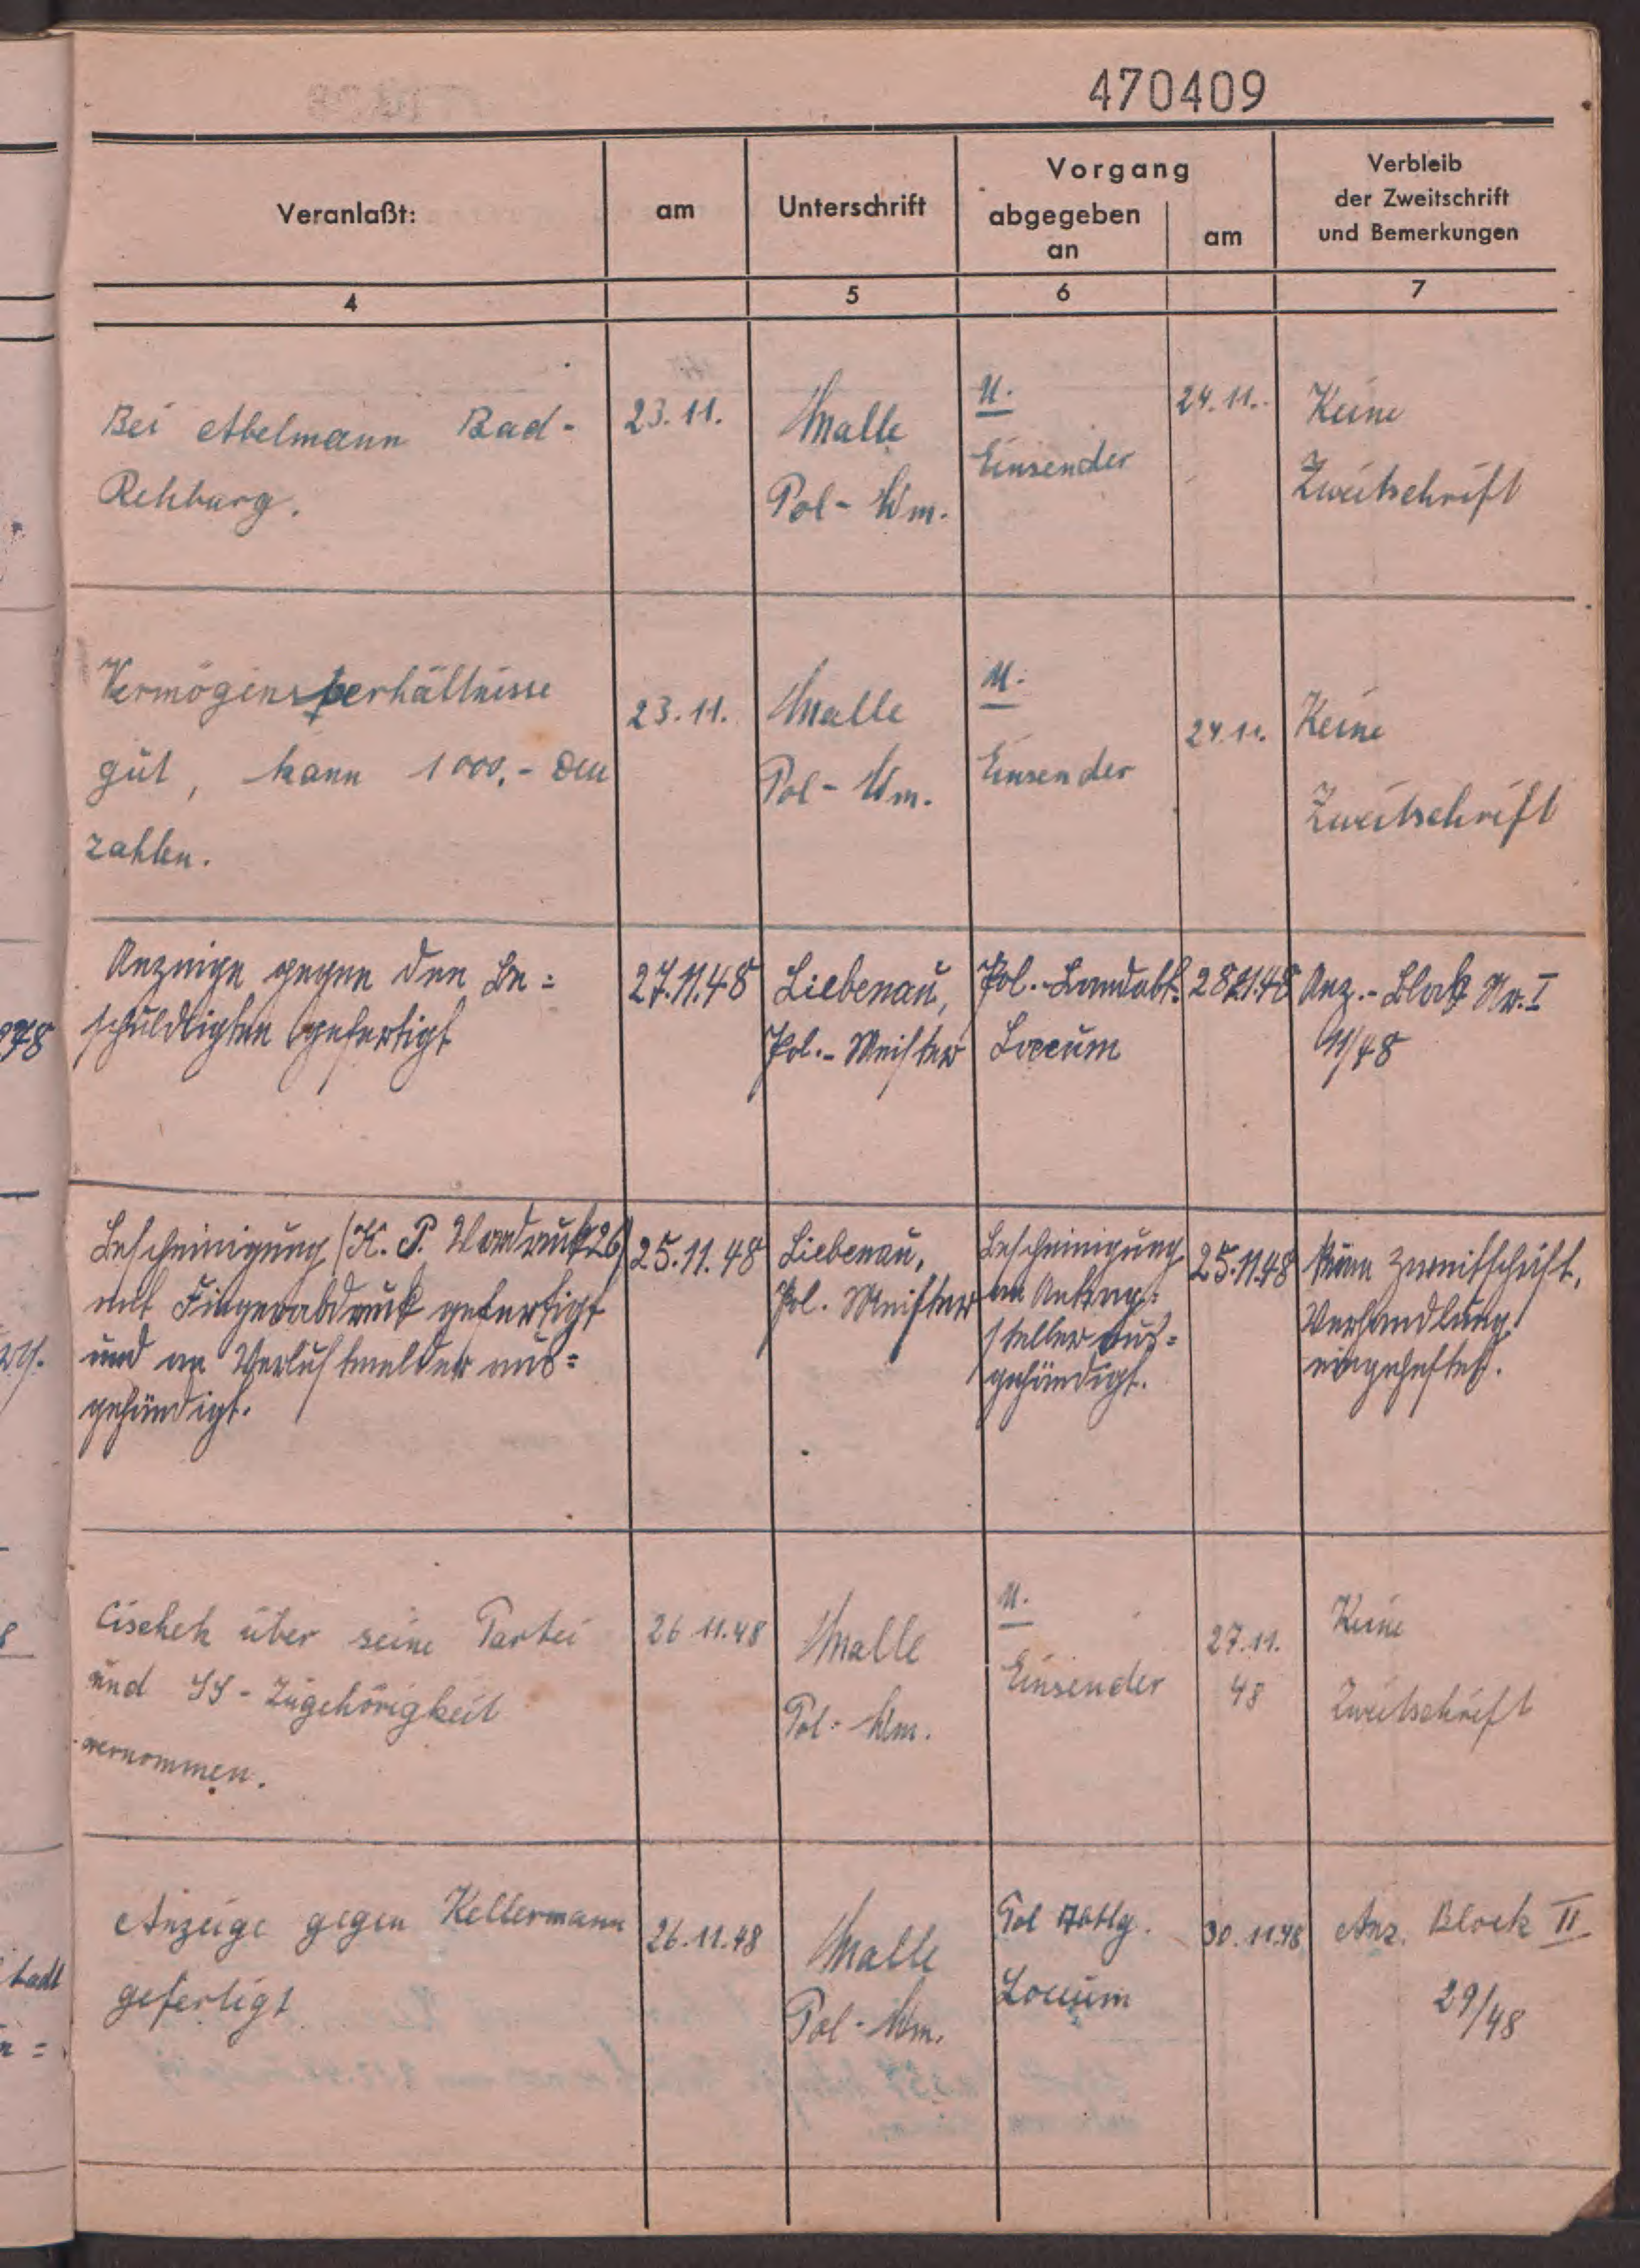 470409
Veranlaßt:
am
Unterschrift
Vorgang
abgegeben
an
am
Verbleib
der Zweitschrift
und Bemerkungen
4
5
6
7
Bei Abelmann Bad-
Rehburg.
23.11.
Malle
Pol-Wm.
U.
Einsender
24.11.
Keine
Zweitschrift
Vermögensverhältnisse
gut, kann 1000,- DM
zahlen.
23.11.
Malle
Pol-Wm.
U.
Einsender
24.11.
Keine
Zweitschrift
Anzeige gegen den Be=
schuldigten gefertigt
27.11.48
Liebenau,
Pol.-Meister
Pol.-Landabt.
Loccum
28.11.48
Anz.-Block Nr. I
11/48
Bescheinigung (K.P. Vordruck 26)
mit Fingerabdruck gefertigt
und an Verlustmelder aus=
gehändigt.
25.11.48
Liebenau,
Pol. Meister
Bescheinigung
an Antrag=
steller aus=
gehändigt.
25.11.48
Keine Zweitschrift,
Verhandlung
eingeheftet.
Cischek über seine Partei
und SS-Zugehörigkeit
vernommen.
26 11.48
Malle
Pol-Wm.
U.
Einsender
27.11.
48
Keine
Zweitschrift
Anzeige gegen Kellermann
gefertigt
26.11.48
Malle
Pol-Wm.
Pol Abtlg.
Loccum
30.11.48
Anz. Block II
29/48